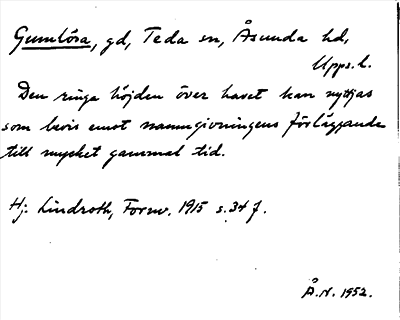 Gumlösa, gd, Teda sn, Åsunda hd,
Upps. l.
Den ringa höjden över havet kan nyttjas
som bevis emot namngivningens förläggande
till mycket gammal tid.
Hj. Lindroth, Fornv. 1915 s. 34 f.
Å.N. 1952.